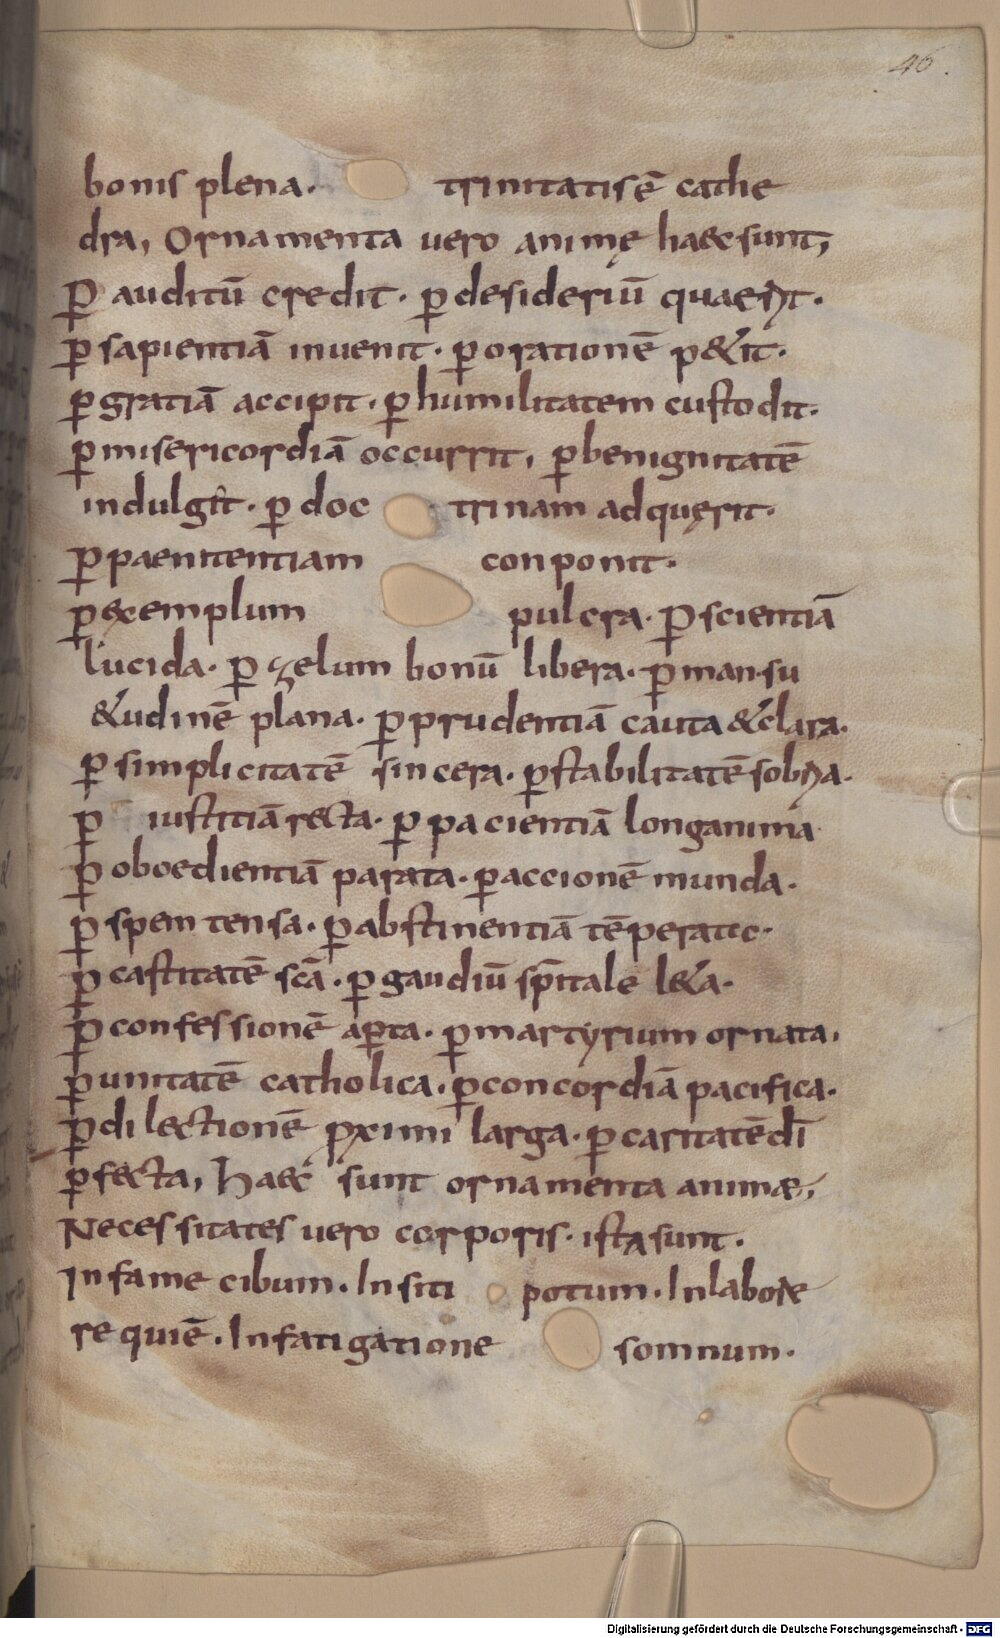 46.
bonis plena· trinitatis ē cathe
dra, Ornamenta uero animę haec sunt,
ꝑ auditū credit· ꝑ desideriū quaerit·
ꝑ sapientiā inuenit· ꝑ orationē p&it·
ꝑ gratiā accipit· ꝑ humilitatem custodit·
ꝑ misericordiā occurrit, ꝑ benignitatē
indulgit· ꝑ doc trinam adquęrit·
ꝑ paenitentiam conponit·
ꝑ exemplum pulcra· ꝑ scientiā
lucida· ꝑ zelum bonū libera· ꝑ mansu
&udinē plana· ꝑ prudentiā cauta & clara·
ꝑ simplicitatē sincera· ꝑ stabilitatē sobria·
ꝑ iustitiā recta· ꝑ pacientiā longanima
ꝑ oboedientiā parata· ꝑ accionē munda·
ꝑ spem tensa· ꝑ abstinentiā tēperata·
ꝑ castitatē scā· ꝑ gaudiū sp̄itale l&a·
ꝑ confessionē aꝑta· ꝑ martyrium ornata,
ꝑ unitatē catholica, ꝑ concordiā pacifica·
ꝑ dilectionē pximi larga· ꝑ caritatē dī
ꝑfecta, Haec sunt ornamenta animæ,
Necessitates uero corporis· ista sunt·
In fame cibum· In siti potum· In labore
requiē· In fatigatione somnum·
Digitalisierung gefördert durch die Deutsche Forschungsgemeinschaft - DFG